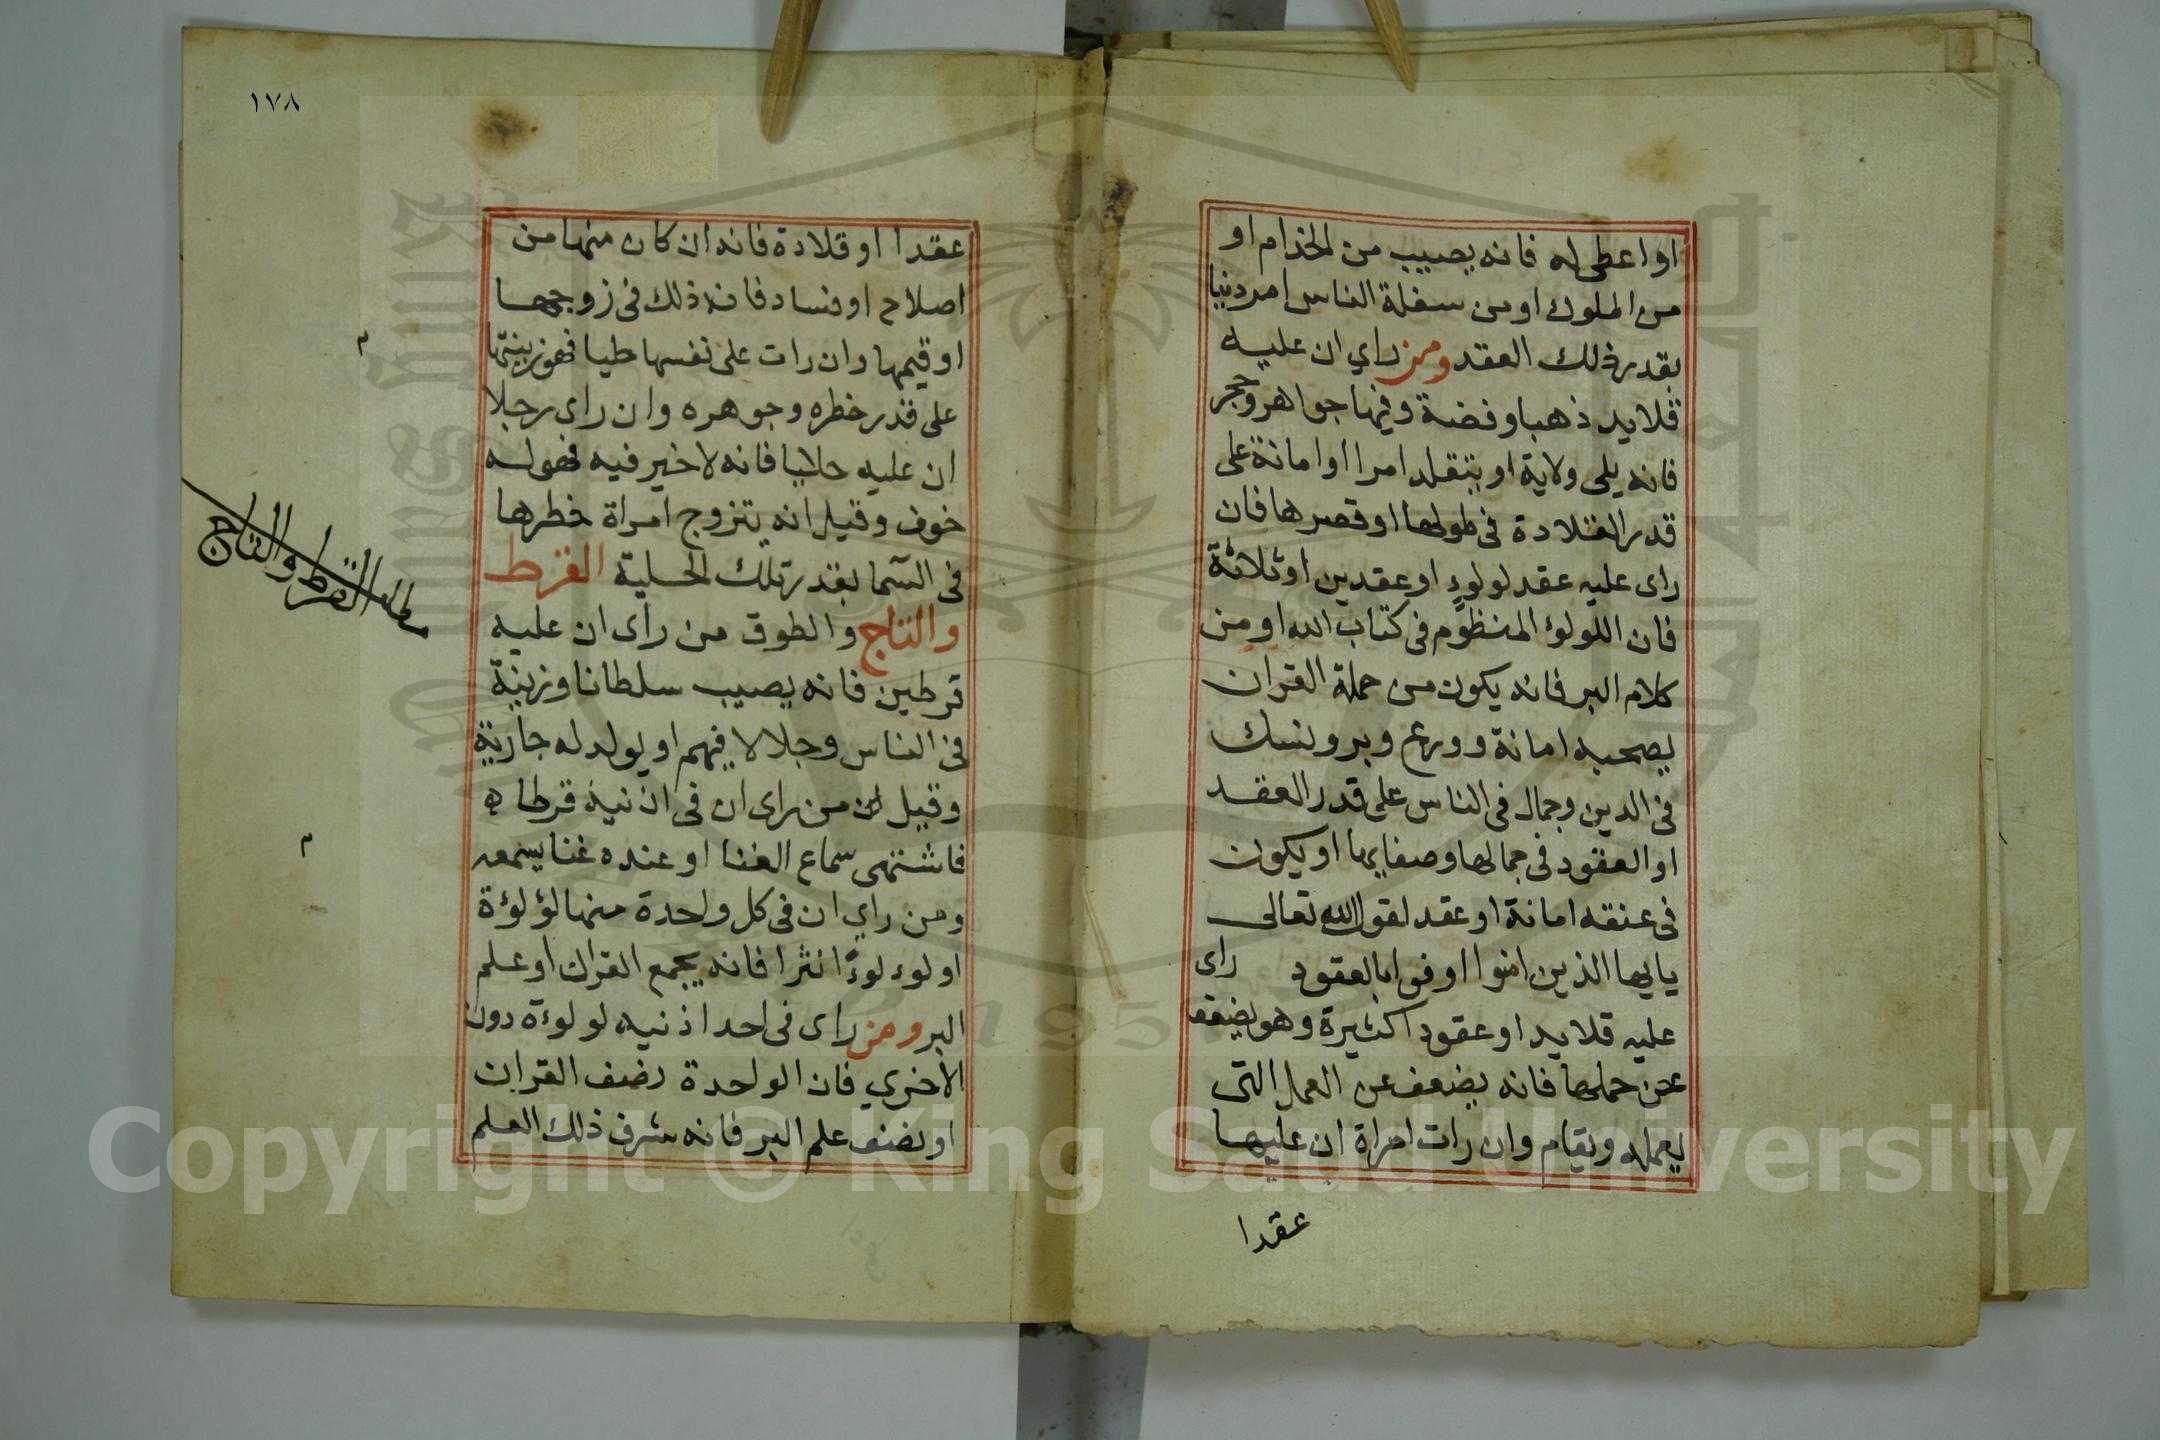 او اعطى له فانه يصيب من الخدام او
من الملوك او من سفلة الناس امر دنيا
بقدر ذلك العقد ومن راي ان عليه
قلايد ذهبا وفضة وفيها جواهر وحجر
فانه يلى ولاية او يتقلد امرا او امانة على
قدر القلادة فى طولها او قصرها فان
راى عليه عقد لولوء او عقدين او ثلاثة
فان اللولوء المنظوم فى كتاب الله او من
كلام البر فانه يكون من حملة القران
يصحبه امانة وورع وبر ونسك
فى الدين وجمال فى الناس على قدر العقد
او العقود فى جمالها وصفايها او يكون
فى عنقه امانة او عقد لقول الله تعالى
يايها الذين امنوا اوفوا بالعقود راى
عليه قلايد او عقود اكثيرة وهو يضعف
عن حملها فانه يضعف عن العمل التى
يعمله ويقام وان رات امراة ان عليها
عقدا
١٧٨
عقدا او قلادة فانه ان كان منها من
اصلاح او فساد فانه ذلك فى زوجها
او قيمها وان رات على نفسها حليا فهو زينتها
على قدر خطره وجوهره وان راى رجلا
ان عليه حليا فانه لا خير فيه فهو له
خوف وقيل انه يتزوج امراة خطرها
فى السما بقدر تلك الحلية القرط
والتاج والطوق من راى ان عليه
قرطين فانه يصيب سلطانا وزينة
فى الناس وجلالا فيهم او يولد له جارية
وقيل ان من راى ان فى اذنيه قرطا
فاشتهى سماع الغنا او عنده غنا يسمعه
ومن راي ان فى كل واحدة منها لؤلؤة
او لوء لوءً انثرا فانه يجمع القران او علم
البر ومن راى فى احد اذنيه لولوءة دون
الاخري فان الواحدة رضف القران
او نصف علم البر فانه شرف ذلك العلم
مطلب القرط والتاج
م
م
Copyright © King Saud University
1957